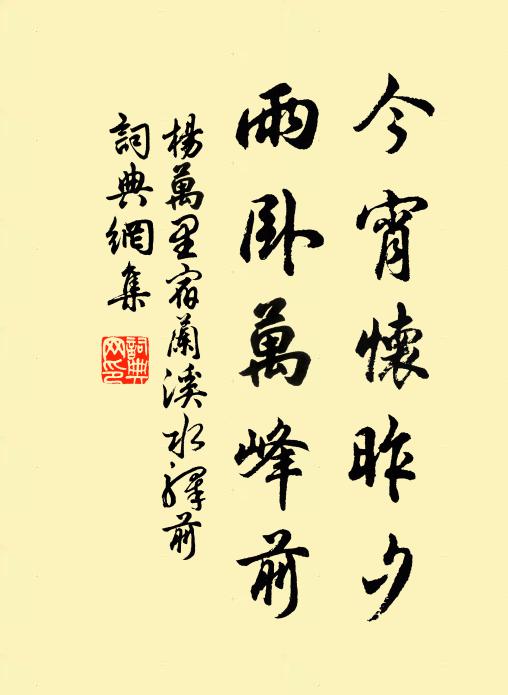 今宵懷昨夕
雨臥萬峰前
楊萬里宿蘭溪水驛前
詞典網集
詞典
网印